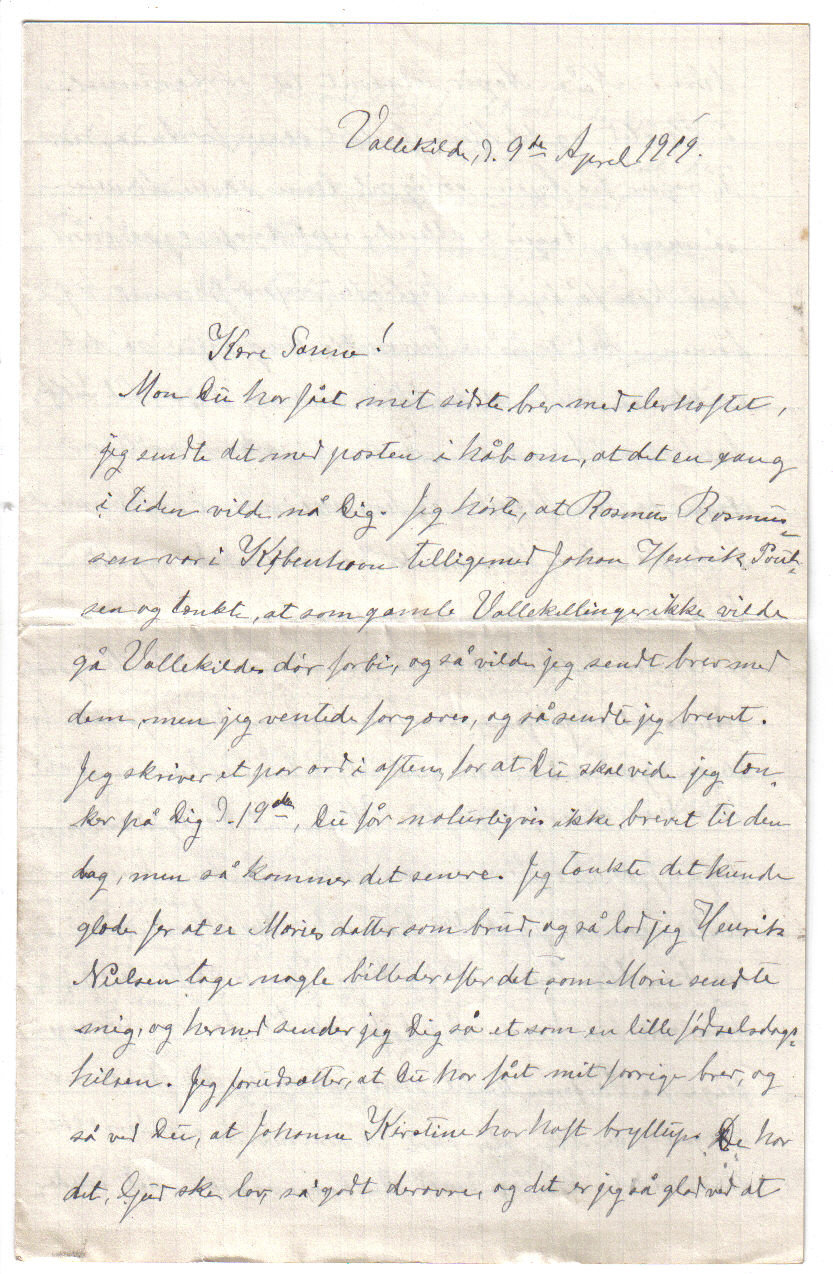 Vallekilde, d. 9de April 1919.
Kære Sanne!
Mon Du har fået mit sidste brev med elevhæftet,
jeg sendte det med posten i håb om, at det en gang
i tiden vilde nå Dig. Jeg hørte, at Rasmus Rasmus-
sen var i København tilligemed Johan Henrik Poul-
sen og tænkte, at som gamle Vallekillinger ikke vilde
gå Vallekildes dør forbi, og så vilde jeg sendt brev med
dem, men jeg ventede forgæves, og så sendte jeg brevet.
Jeg skriver et par ord i aften, for at Du skal vide jeg tæn-
ker på Dig d. 19de, Du får naturligvis ikke brevet til den
dag, men så kommer det senere. Jeg tænkte det kunde
glæde Jer at se Maries datter som brud, og så lod jeg Henrik
Nielsen tage nogle billeder efter det som Marie sendte
mig, og hermed sender jeg Dig så et som en lille fødselsdags-
hilsen. Jeg forudsætter, at Du har fået mit forrige brev, og
så ved Du, at Johanne Kirstine har haft bryllup. De har
det, Gud ske lov, så godt derovre, og det er jeg så glad ved at